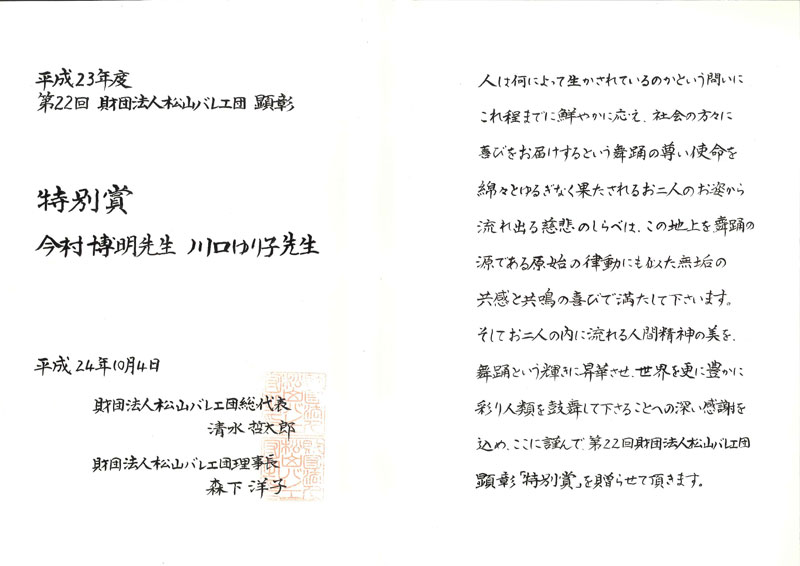 平成23年度
第22回 財団法人松山バレエ団 顕彰
特別賞
今村博明先生 川口ゆり子先生
平成24年10月4日
財団法人松山バレエ団総代表
清水哲太郎
財団法人松山バレエ団理事長
森下洋子
人は何によって生かされているのかという問いに
これ程までに鮮やかに応え、社会の方々に
喜びをお届けするという舞踊の尊い使命を
綿々とゆるぎなく果たされるお二人のお姿から
流れ出る慈悲のしらべは、この地上を舞踊の
源である原始の律動にも似た無垢の
共感と共鳴の喜びで満たして下さいます。
そしてお二人の内に流れる人間精神の美を、
舞踊という輝きに昇華させ、世界を更に豊かに
彩り人類を鼓舞して下さることへの深い感謝を
込め、ここに謹んで、第22回財団法人松山バレエ団
顕彰「特別賞」を贈らせて頂きます。